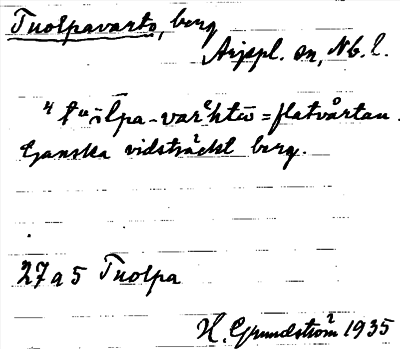 Tuolpavarto, berg
Arjepl. sn, Nb. l.
"tuolpa-varehtō = flatvårtan.
Ganska vidsträckt berg.
27 a 5 Tuolpa
H. Grundström 1935